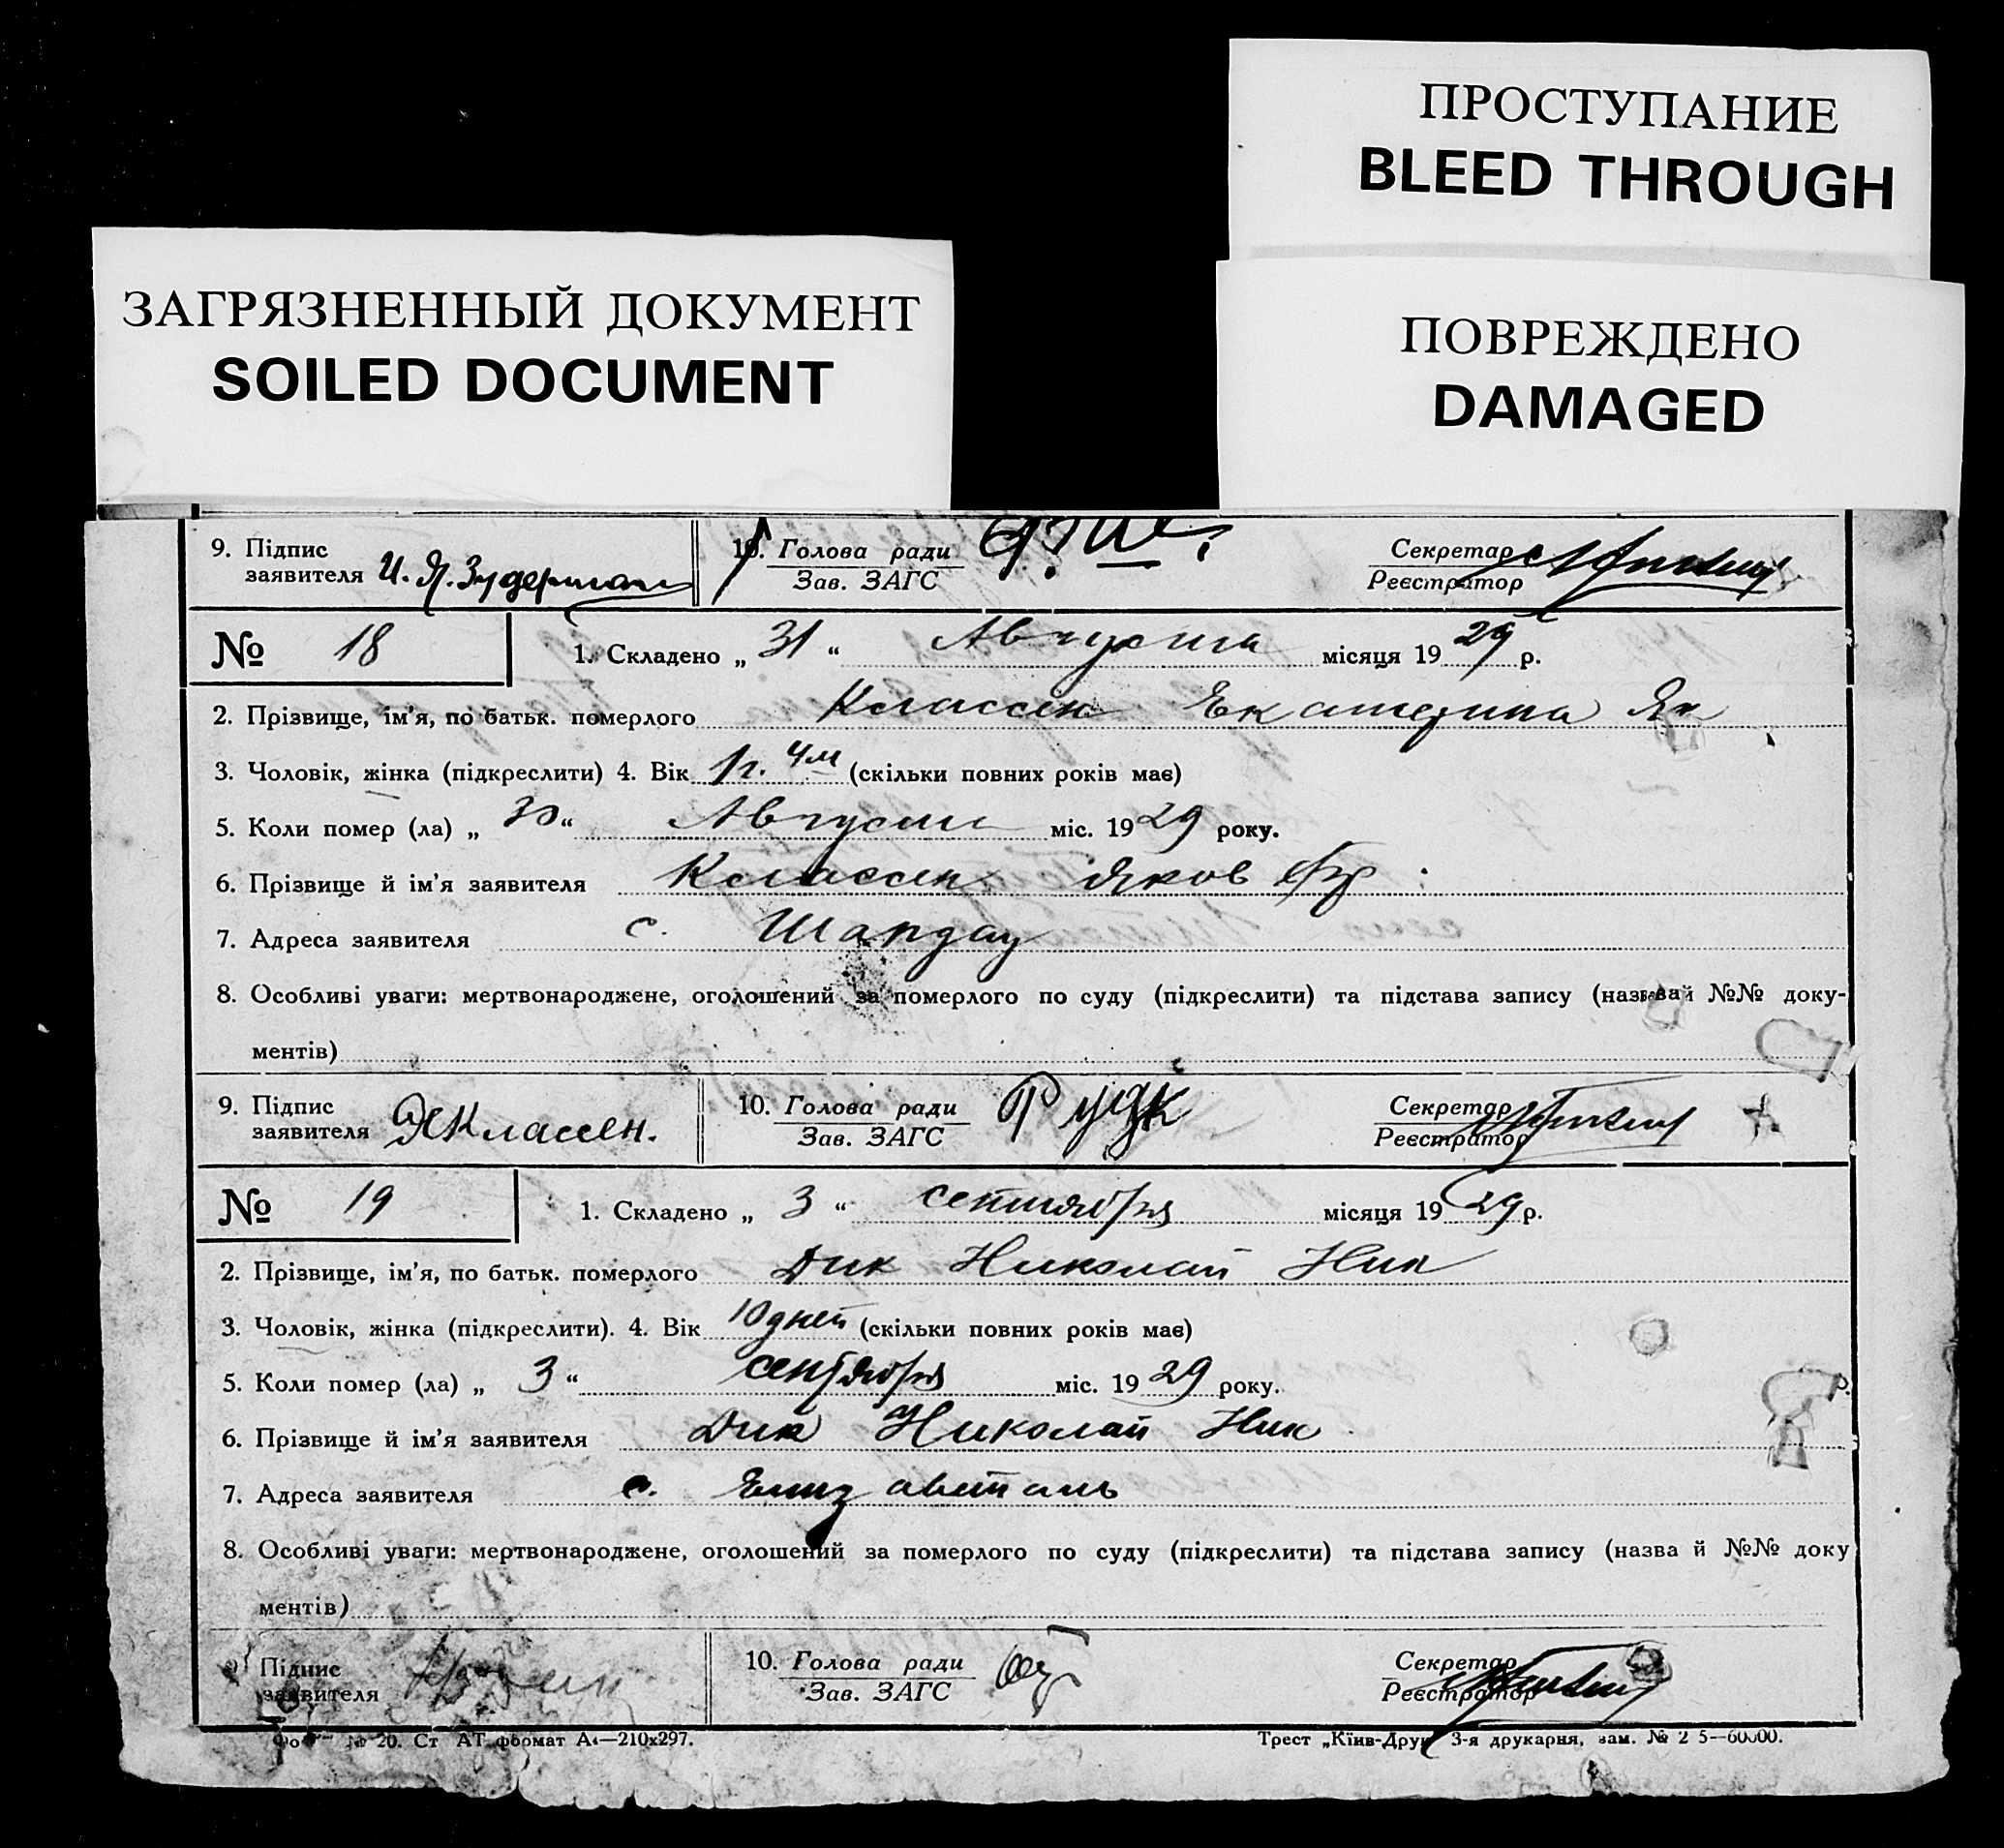 ПРОСТУПАНИЕ
BLEED THROUGH
ЗАГРЯЗНЕННЫЙ ДОКУМЕНТ
SOILED DOCUMENT
ПОВРЕЖДЕНО
DAMAGED
9. Підпис заявителя И. Я. Зудерман 10. Голова ради Зав. ЗАГС Секретар Реєстратор
№ 18 1. Складено „ 31 “ Августа місяця 19 29 р.
2. Прізвище, ім’я, по батьк. померлого Классен Екатерина Як
3. Чоловік, жінка (підкреслити) 4. Вік 1 г. 4 м (скільки повних років має)
5. Коли помер (ла) „ 30 “ Августа міс. 19 29 року.
6. Прізвище й ім’я заявителя Классен Яков
7. Адреса заявителя с. Шардау
8. Особливі уваги: мертвонароджене, оголошений за померлого по суду (підкреслити) та підстава запису (назва й №№ доку-
ментів)
9. Підпис заявителя Я Классен. 10. Голова ради Зав. ЗАГС Секретар Реєстратор
№ 19 1. Складено „ 3 “ сентября місяця 19 29 р.
2. Прізвище, ім’я, по батьк. померлого Дик Николай Ник
3. Чоловік, жінка (підкреслити). 4. Вік 10 дней (скільки повних років має)
5. Коли помер (ла) „ 3 “ сентября міс. 19 29 року.
6. Прізвище й ім’я заявителя Дик Николай Ник
7. Адреса заявителя с. Елизаветаль
8. Особливі уваги: мертвонароджене, оголошений за померлого по суду (підкреслити) та підстава запису (назва й №№ доку
ментів)
Підпис заявителя 10. Голова ради Зав. ЗАГС Секретар Реєстратор
№ 20. Ст АТ формат А4—210х297. Трест „Київ-Друк 3-я друкарня, зам. №